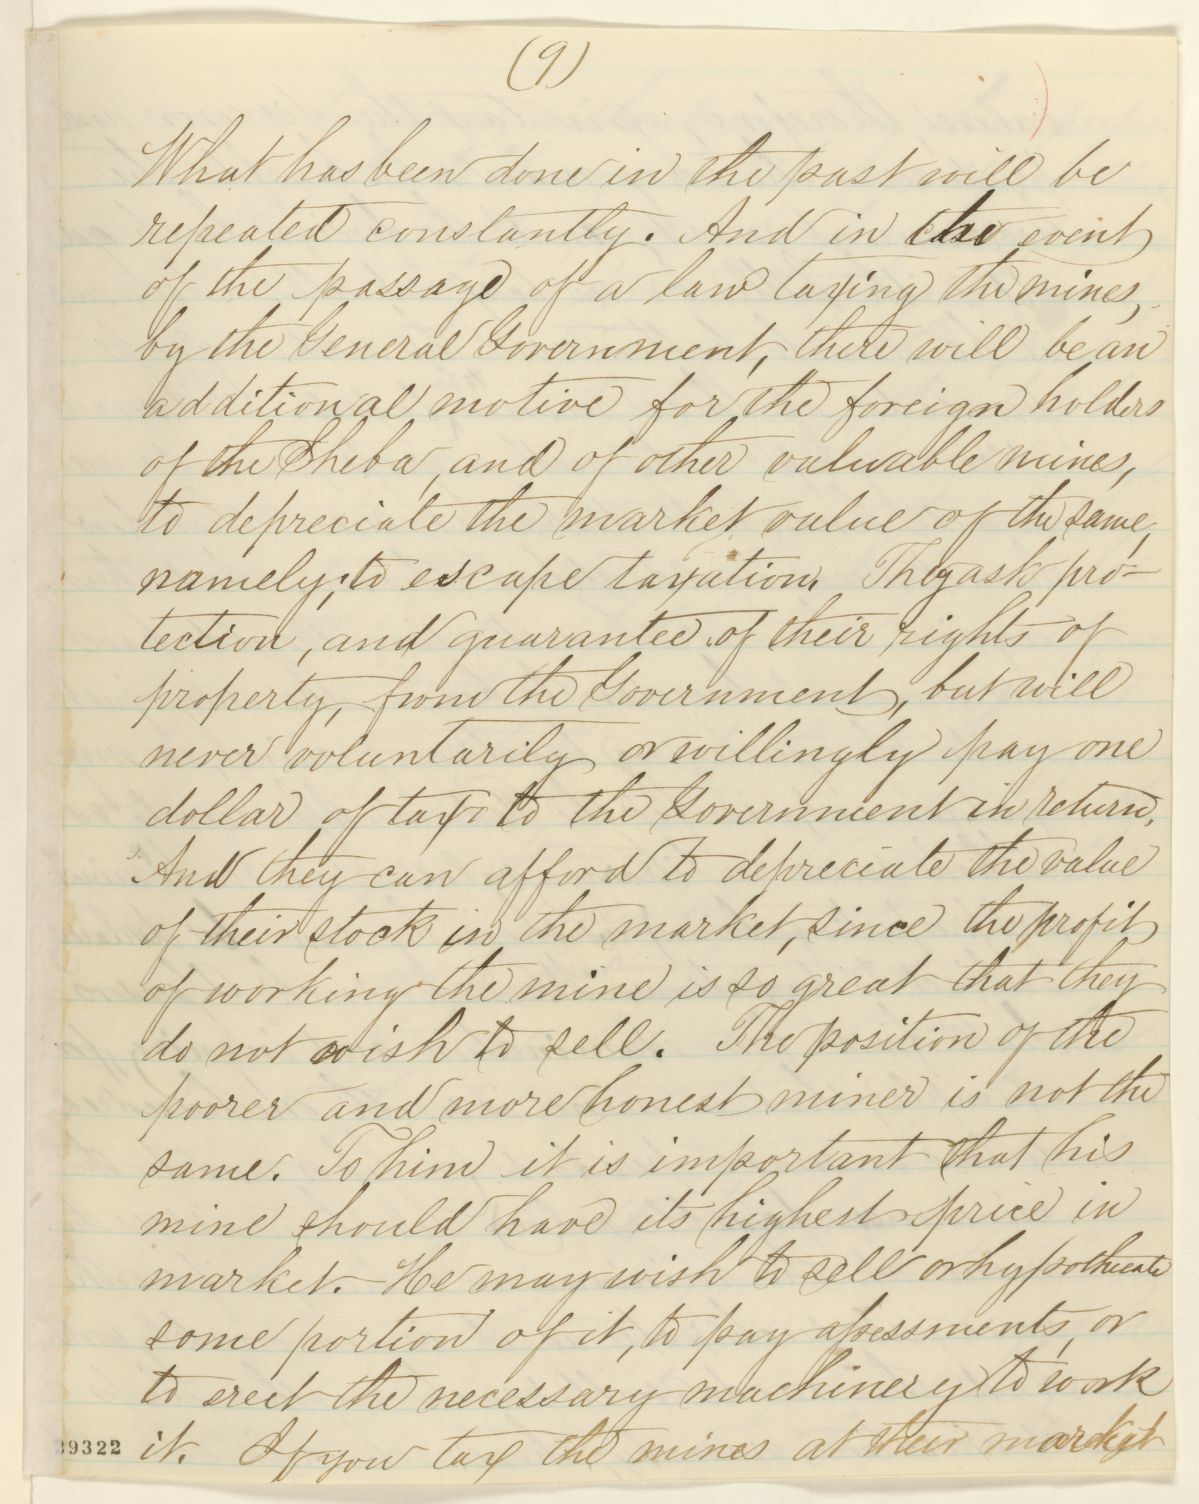 (9)
What has been done in the past will be
repeated constantly. And in the event
of the passage of a law taxing the mines,
by the General Government, there will be an
additional motive for the foreign holders
of the Sheba, and of other valuable mines,
to depreciate the market value of the same,
namely; to escape taxation. They ask pro-
tection, and guarantee of their rights of
property, from the Government, but will
never voluntarily or willingly pay one
dollar of tax to the Government in return.
And they can afford to depreciate the value
of their stock in the market, since the profit
of working the mine is so great that they
do not wish to sell. The position of the
poorer and more honest miner is not the
same. To him it is important that his
mine should have its highest price in
market. He may wish to sell or hypothecate
some portion of it, to pay assessments, or
to erect the necessary machinery to work
it. If you tax the mines at their market